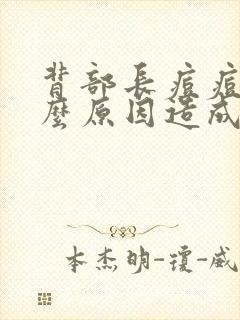 背部長痘痘
麼原因造成
本杰明-瓊-威